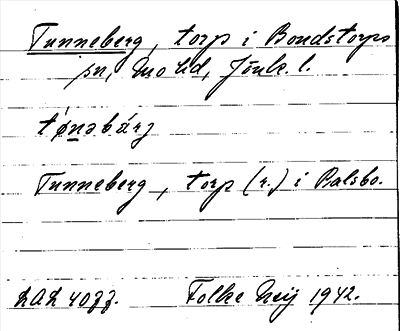 Tunneberg, torp i Bondstorps
sn, Mo hd, Jönk. l.
tø̀nəbárj
Tunneberg, torp (r.) i Balsbo.
Folke Neij 1942.